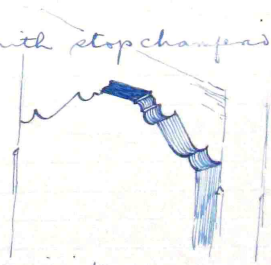 with stop chamfers